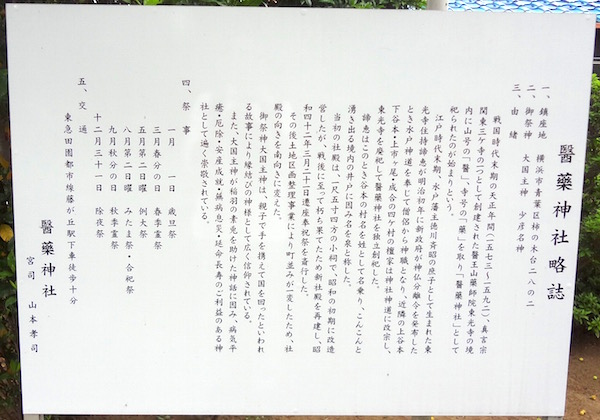 醫藥神社略誌
一、鎮座地　横浜市青葉区柿の木台二八の二
二、御祭神　大国主神　少彦名神
三、由緒
戦国時代末期の天正年間（一五七三～一五九二）、真言宗
関東三ケ寺の一つとして創建された醫王山薬師院東光寺の境
内に山号の「醫」、寺号の「藥」を取り「醫藥神社」として
祀られたのが始まりという。
江戸時代末期、水戸藩主徳川斉昭の庶子として生まれた東
光寺住持諦恵が明治初年に新政府が神仏分離令を発布した
とき水戸神道を奉じて僧侶から神職となり、近隣の上谷本・
下谷本・上市ケ尾・成合の四ケ村の檀家は神社神道に改宗し、
東光寺を廃祀して醫藥神社を独立創祀した。
諦恵はこのとき谷本の村名を姓として名乗り、こんこんと
湧き出る境内の井戸に因み名を泉と称した。
当初の社殿は、一尺五寸四方の小祠で、昭和の初期に改造
営したが、戦後に至って朽ち果てたため新社殿を再建し、昭
和四十二年三月二十一日遷座奉祝祭を斎行した。
その後土地区画整理事業により町並みが一変したため、社
殿の向きを南向きに変えた。
御祭神大国主神は、親子で手を携えて国を回ったといわれ
る故事により縁結びの神様として広く信仰されている。
また、大国主神が稲羽の素兎を助けた神話に因み、病気平
癒・厄除・安産成就・無病息災・延命長寿のご利益のある神
社として遍く崇敬されている。
四、祭事
一月　一日　歳旦祭
三月春分の日　春季霊祭
五月第二日曜　例大祭
八月第二日曜　みたま祭・合祀祭
九月秋分の日　秋季霊祭
十二月三十一日　除夜祭
五、交通
東急田園都市線藤が丘駅下車徒歩十分
醫藥神社
宮司　山本孝司